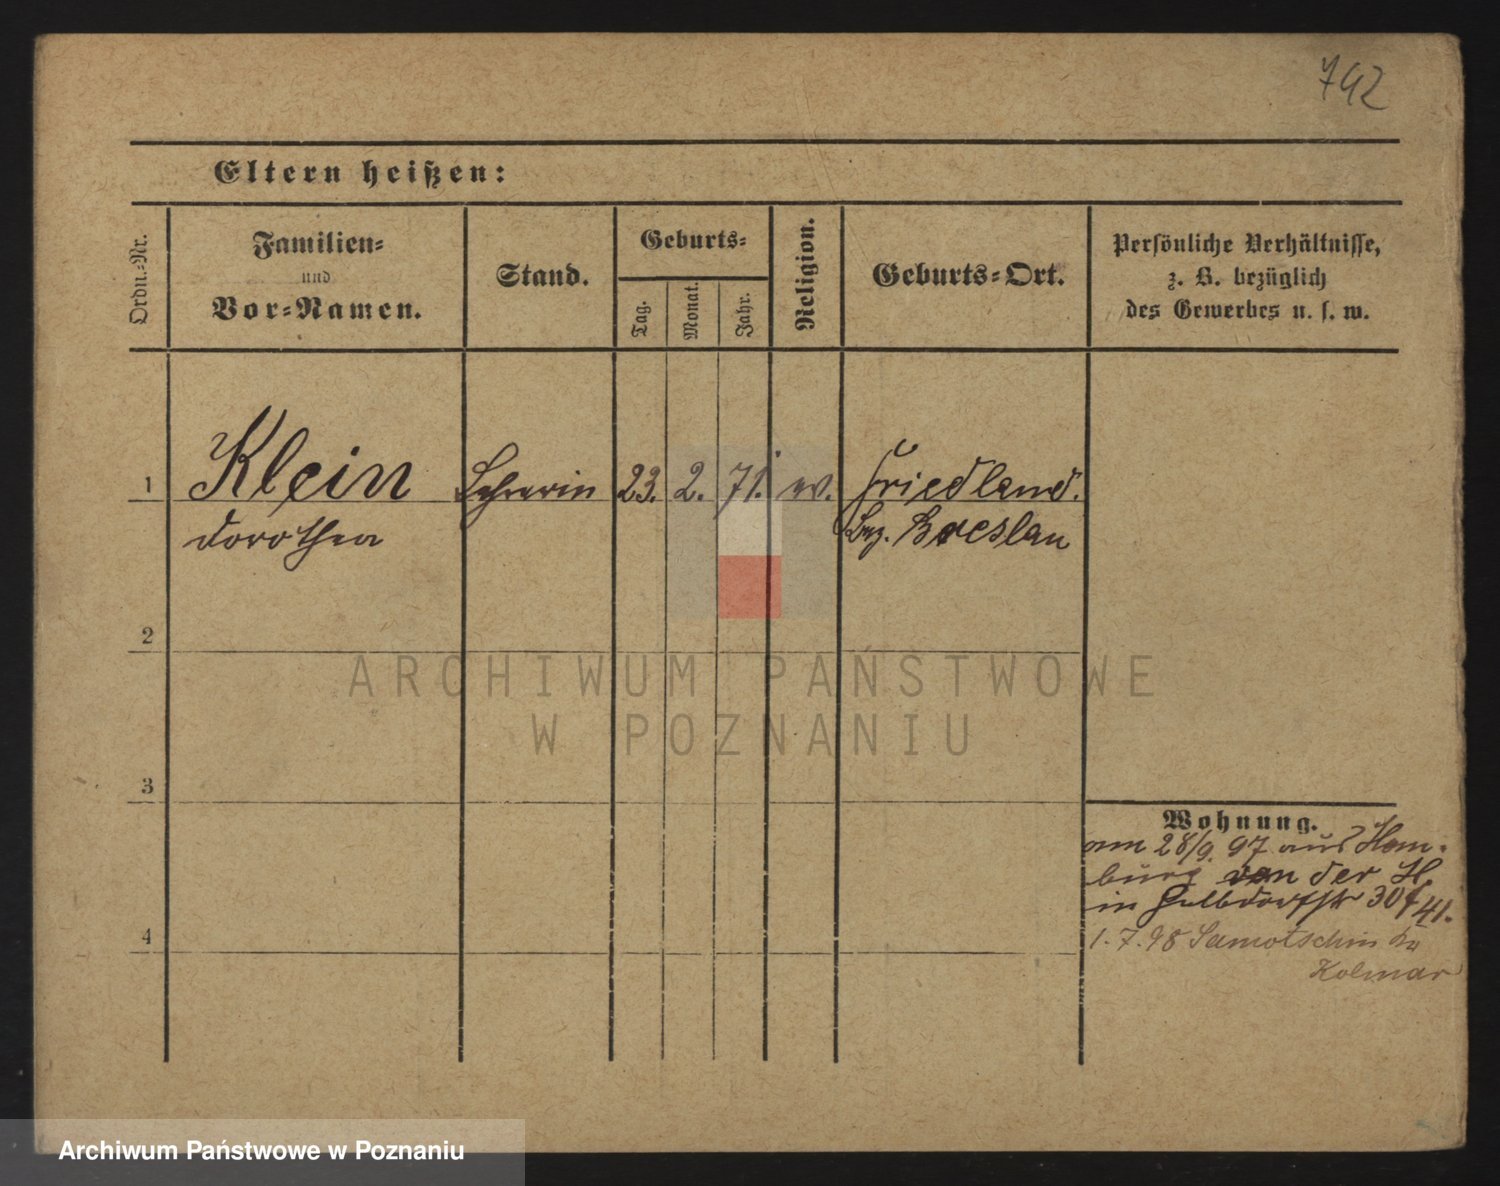 742
Eltern heißen:
Ordn.-Nr.
Familien-
und
Vor-Namen.
Stand.
Geburts-
Tag.
Monat.
Jahr.
Religion.
Geburts-Ort.
Persönliche Verhältnisse,
z. B. bezüglich
des Gewerbes u. s. w.
1 Klein Lehrerin 23. 2. 71. ev. Friedland.
Dorothea Bez. Breslau
2
3
4
Wohnung.
am 28/9. 97 aus Ham-
burg von der H.
in 30 41.
1. 7. 98 Samotschin Kr
Kolmar
ARCHIWUM PAŃSTWOWE
W POZNANIU
Archiwum Państwowe w Poznaniu